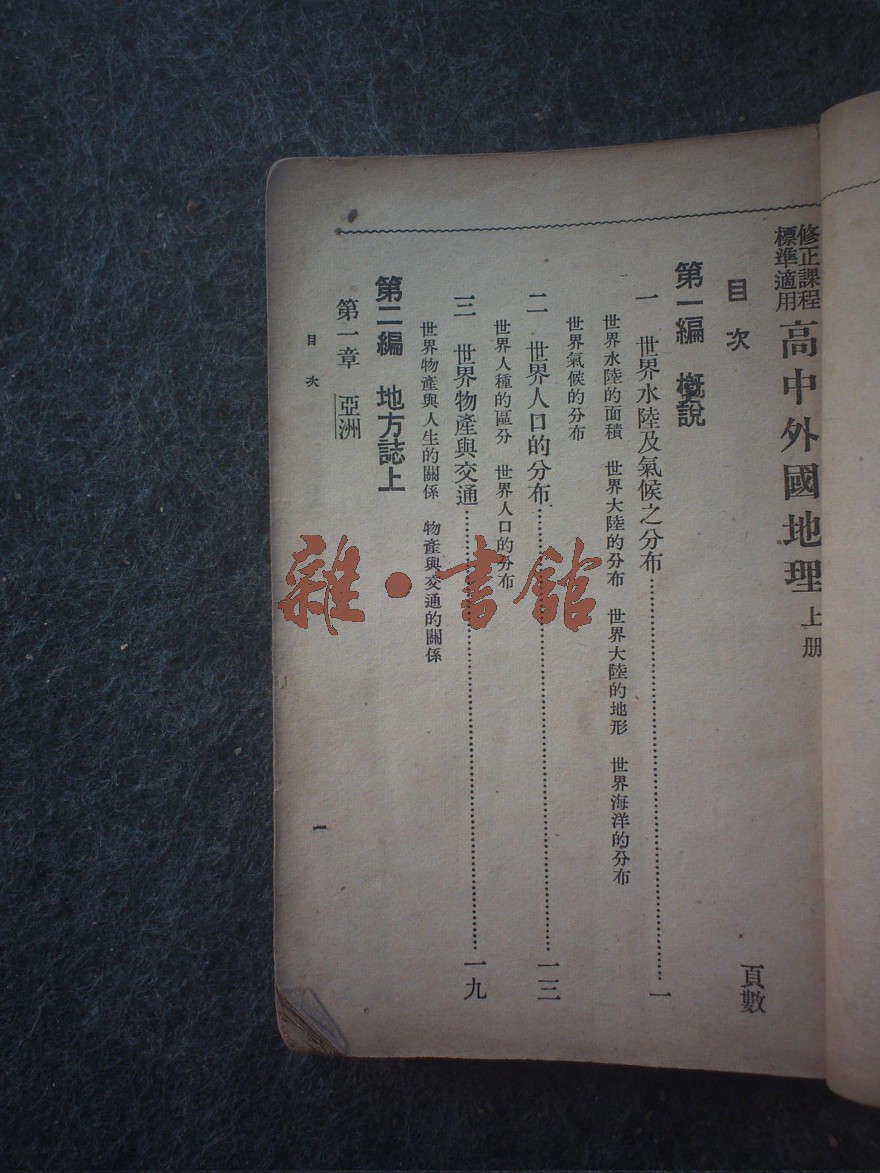 修正課程
標準適用
高中外國地理 上册
目次
頁數
第一編 概說
一 世界水陸及氣候之分布……一
世界水陸的面積 世界大陸的分布 世界大陸的地形 世界海洋的分布
世界氣候的分布
二 世界人口的分布……一三
世界人種的區分 世界人口的分布
三 世界物產與交通……一九
世界物產與人生的關係 物產與交通的關係
第二編 地方誌上
第一章 亞洲
目次
一
雜·書館